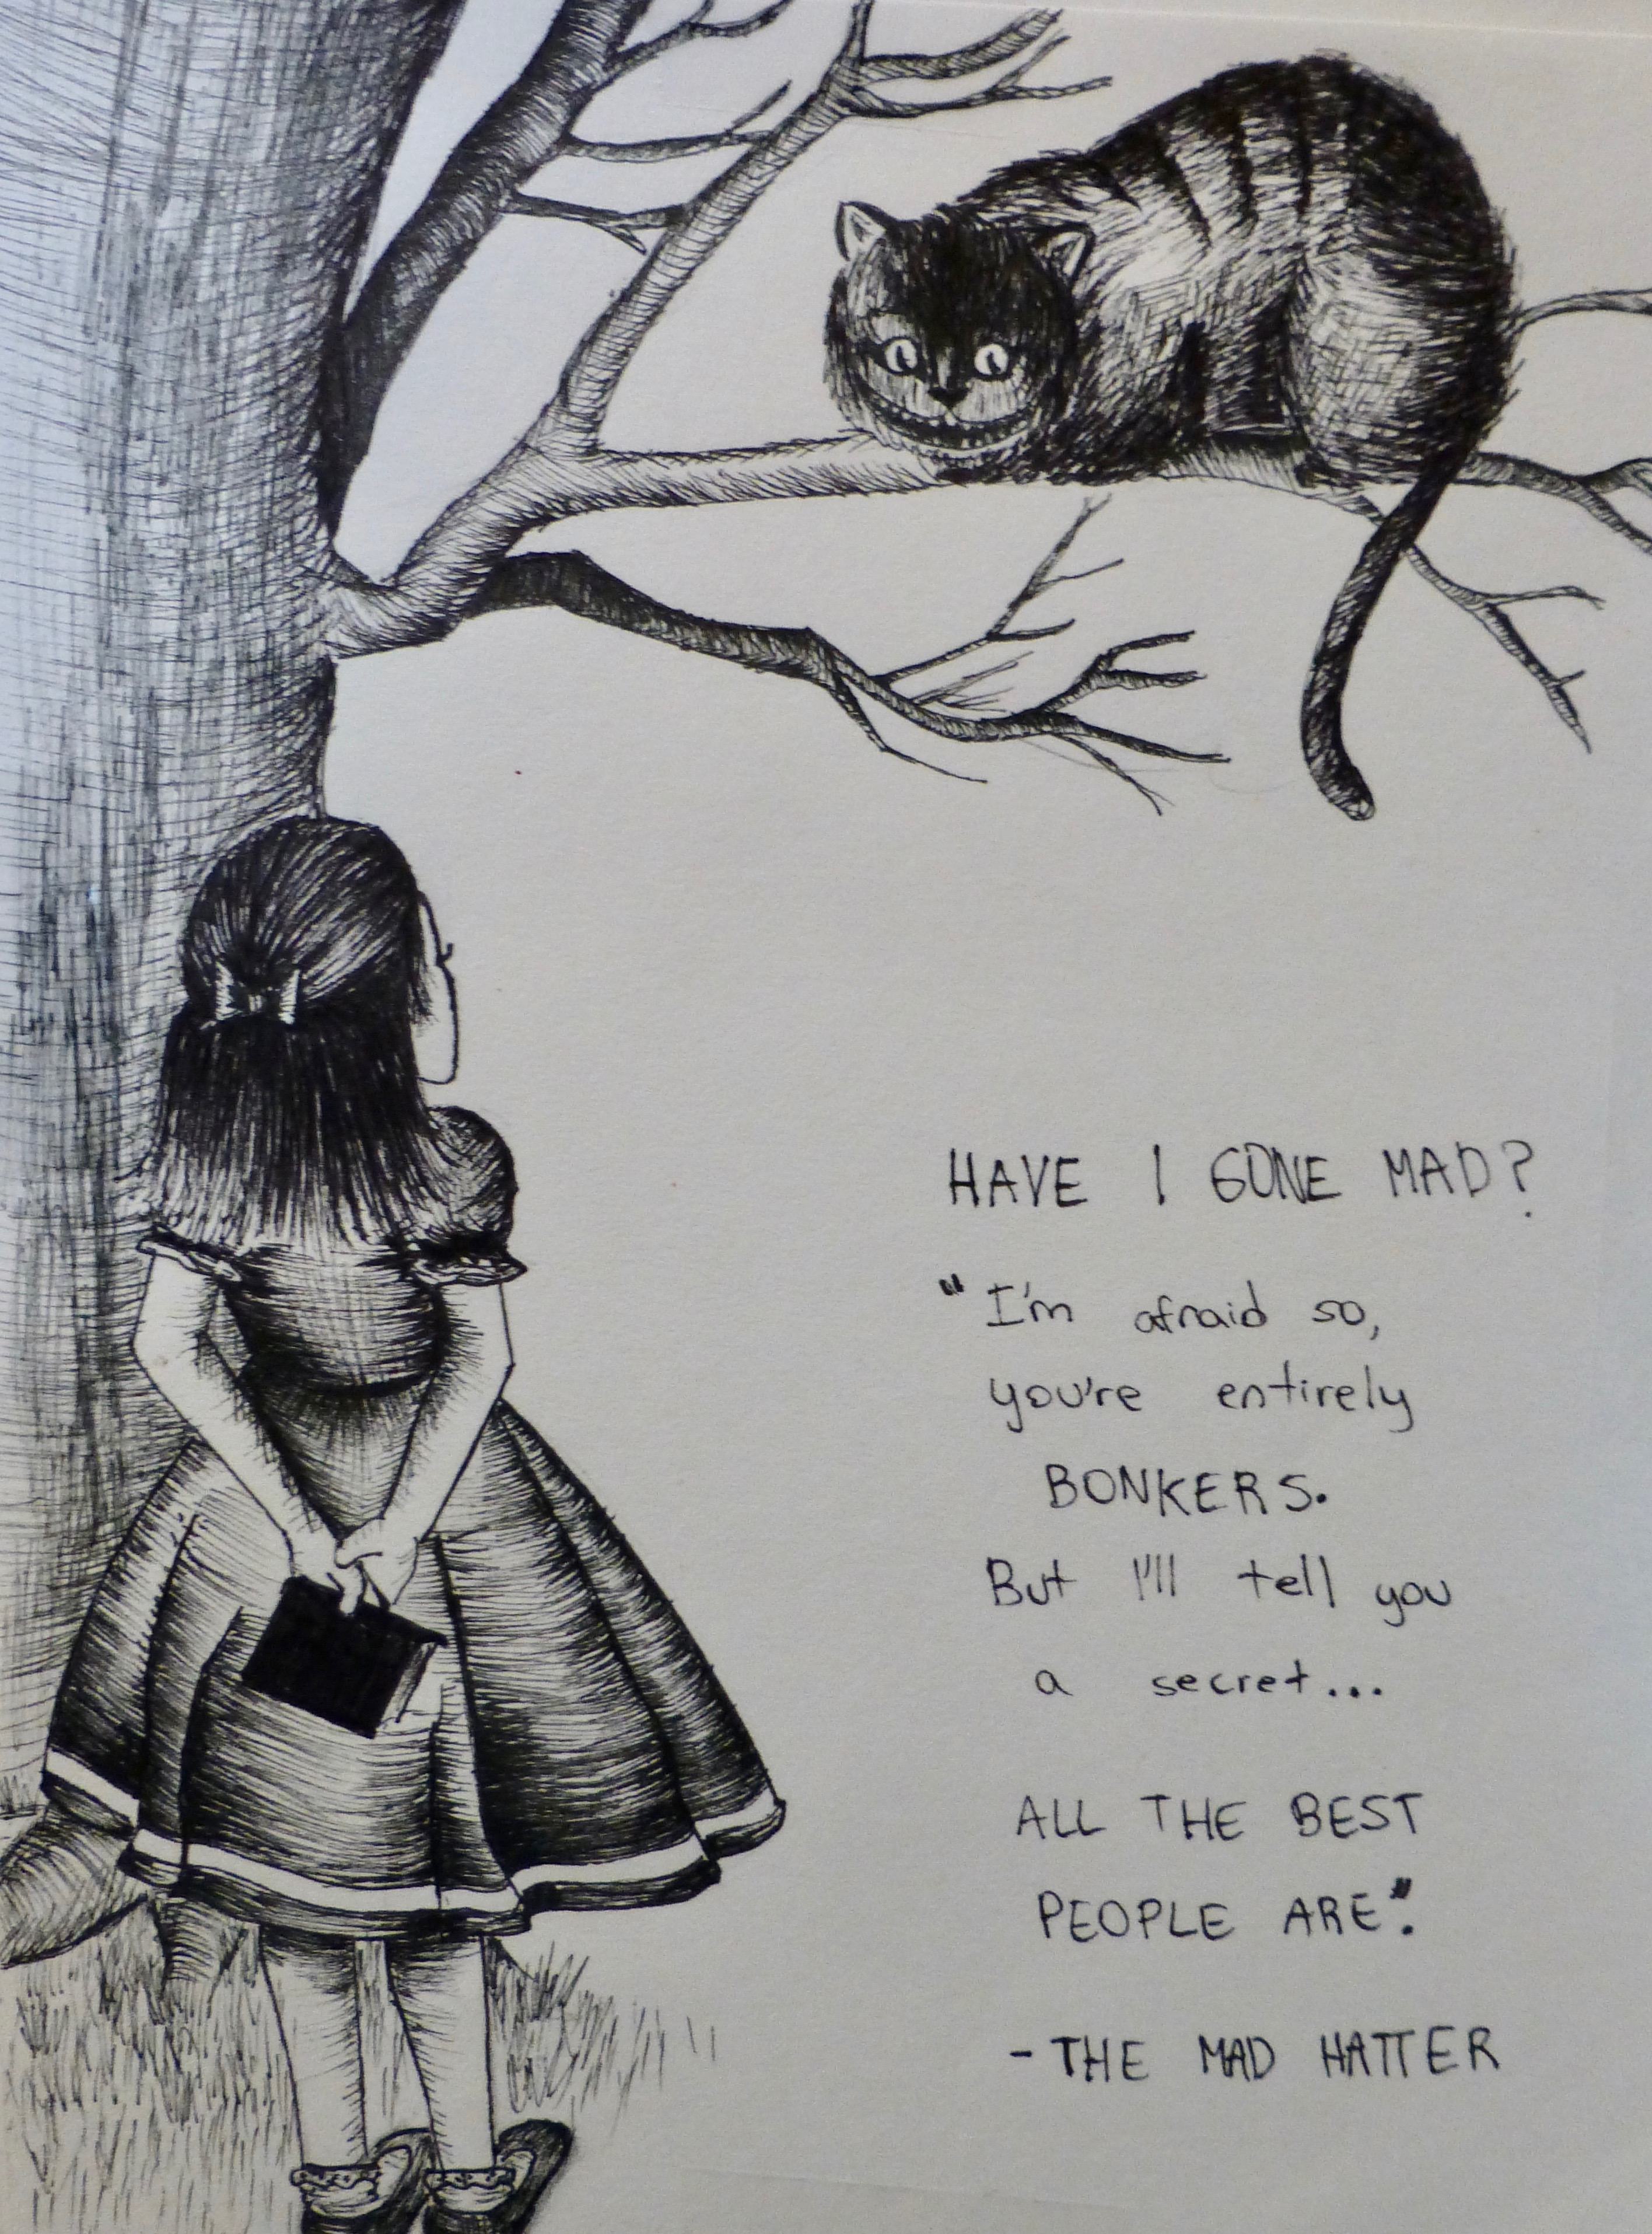 HAVE I GONE MAD?
"I'm afraid so,
you're entirely
BONKERS.
But I'll tell you
a secret...
ALL THE BEST
PEOPLE ARE".
- THE MAD HATTER